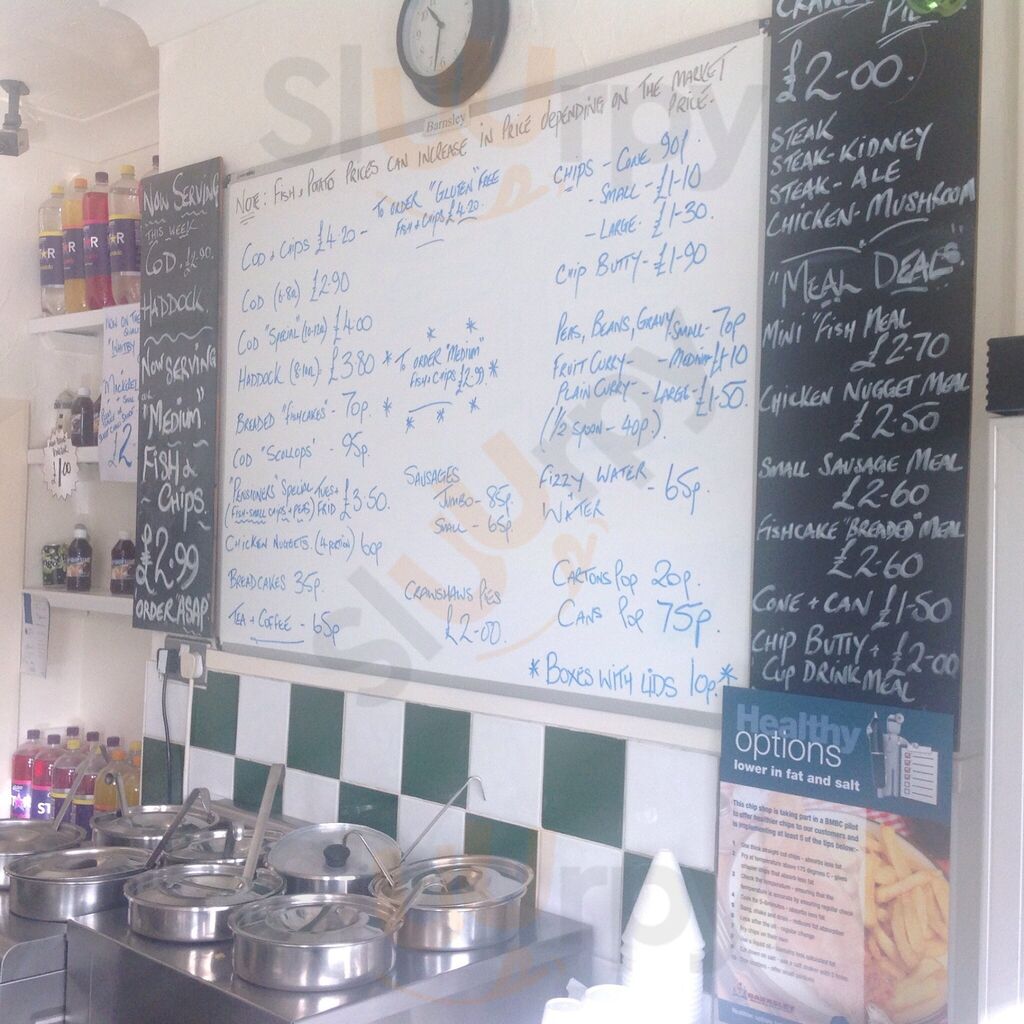 NOW SERVING
THIS WEEK
COD. £2.90.
HADDOCK
NOW SERVING
"MEDIUM"
FISH &
CHIPS
£2.99
ORDER "ASAP"
NOW ON THE
"WHITBY"
£2
£1.00
Barnsley
NOTE: FISH & POTATO PRICES CAN INCREASE IN PRICE DEPENDING ON THE MARKET
PRICE.
TO ORDER "GLUTEN" FREE
FISH + CHIPS £4.20.
COD + CHIPS £4.20 -
COD (6-8oz) £2.90
COD "SPECIAL" (10-12oz) £4.00
HADDOCK (8-10oz) £3.80
BREADED "FISHCAKES" - 70p.
COD "SCOLLOPS" - 95p.
"PENSIONERS" SPECIAL TUES + £3.50.
(FISH-SMALL CHIPS + PEAS) FRID
CHICKEN NUGGETS (4 PORTION) 60p
BREADCAKES 35p.
TEA + COFFEE - 65p
* TO ORDER "MEDIUM"
FISH & CHIPS £2.99. *
SAUSAGES
JUMBO - 85p.
SMALL - 65p.
CRAWSHAWS PIES
£2-00.
CHIPS - CONE 90p.
- SMALL - £1-10
- LARGE - £1-30.
CHIP BUTTY - £1-90
PEAS, BEANS, GRAVY SMALL - 70p
FRUIT CURRY - - MEDIUM £1-10
PLAIN CURRY - LARGE - £1-50.
(1/2 SPOON - 40p.)
FIZZY WATER - 65p.
WATER
CARTONS POP 20p.
CANS POP 75p.
* BOXES WITH LIDS 10p. *
PIE
£2-00.
STEAK
STEAK-KIDNEY
STEAK- ALE
CHICKEN-MUSHROOM
"MEAL DEALS"
MINI "FISH MEAL
£2-70
CHICKEN NUGGET MEAL
£2-50
SMALL SAUSAGE MEAL
£2-60
FISHCAKE "BREADED" MEAL
£2-60
CONE + CAN £1-50
CHIP BUTTY + £2-00
CUP DRINK MEAL
Healthy
options
lower in fat and salt
This chip shop is taking part in a BMBC pilot
to offer healthier chips to our customers and
is implementing at least 5 of the tips below:-
BARNSLEY
slurpy
slurpy
slurpy